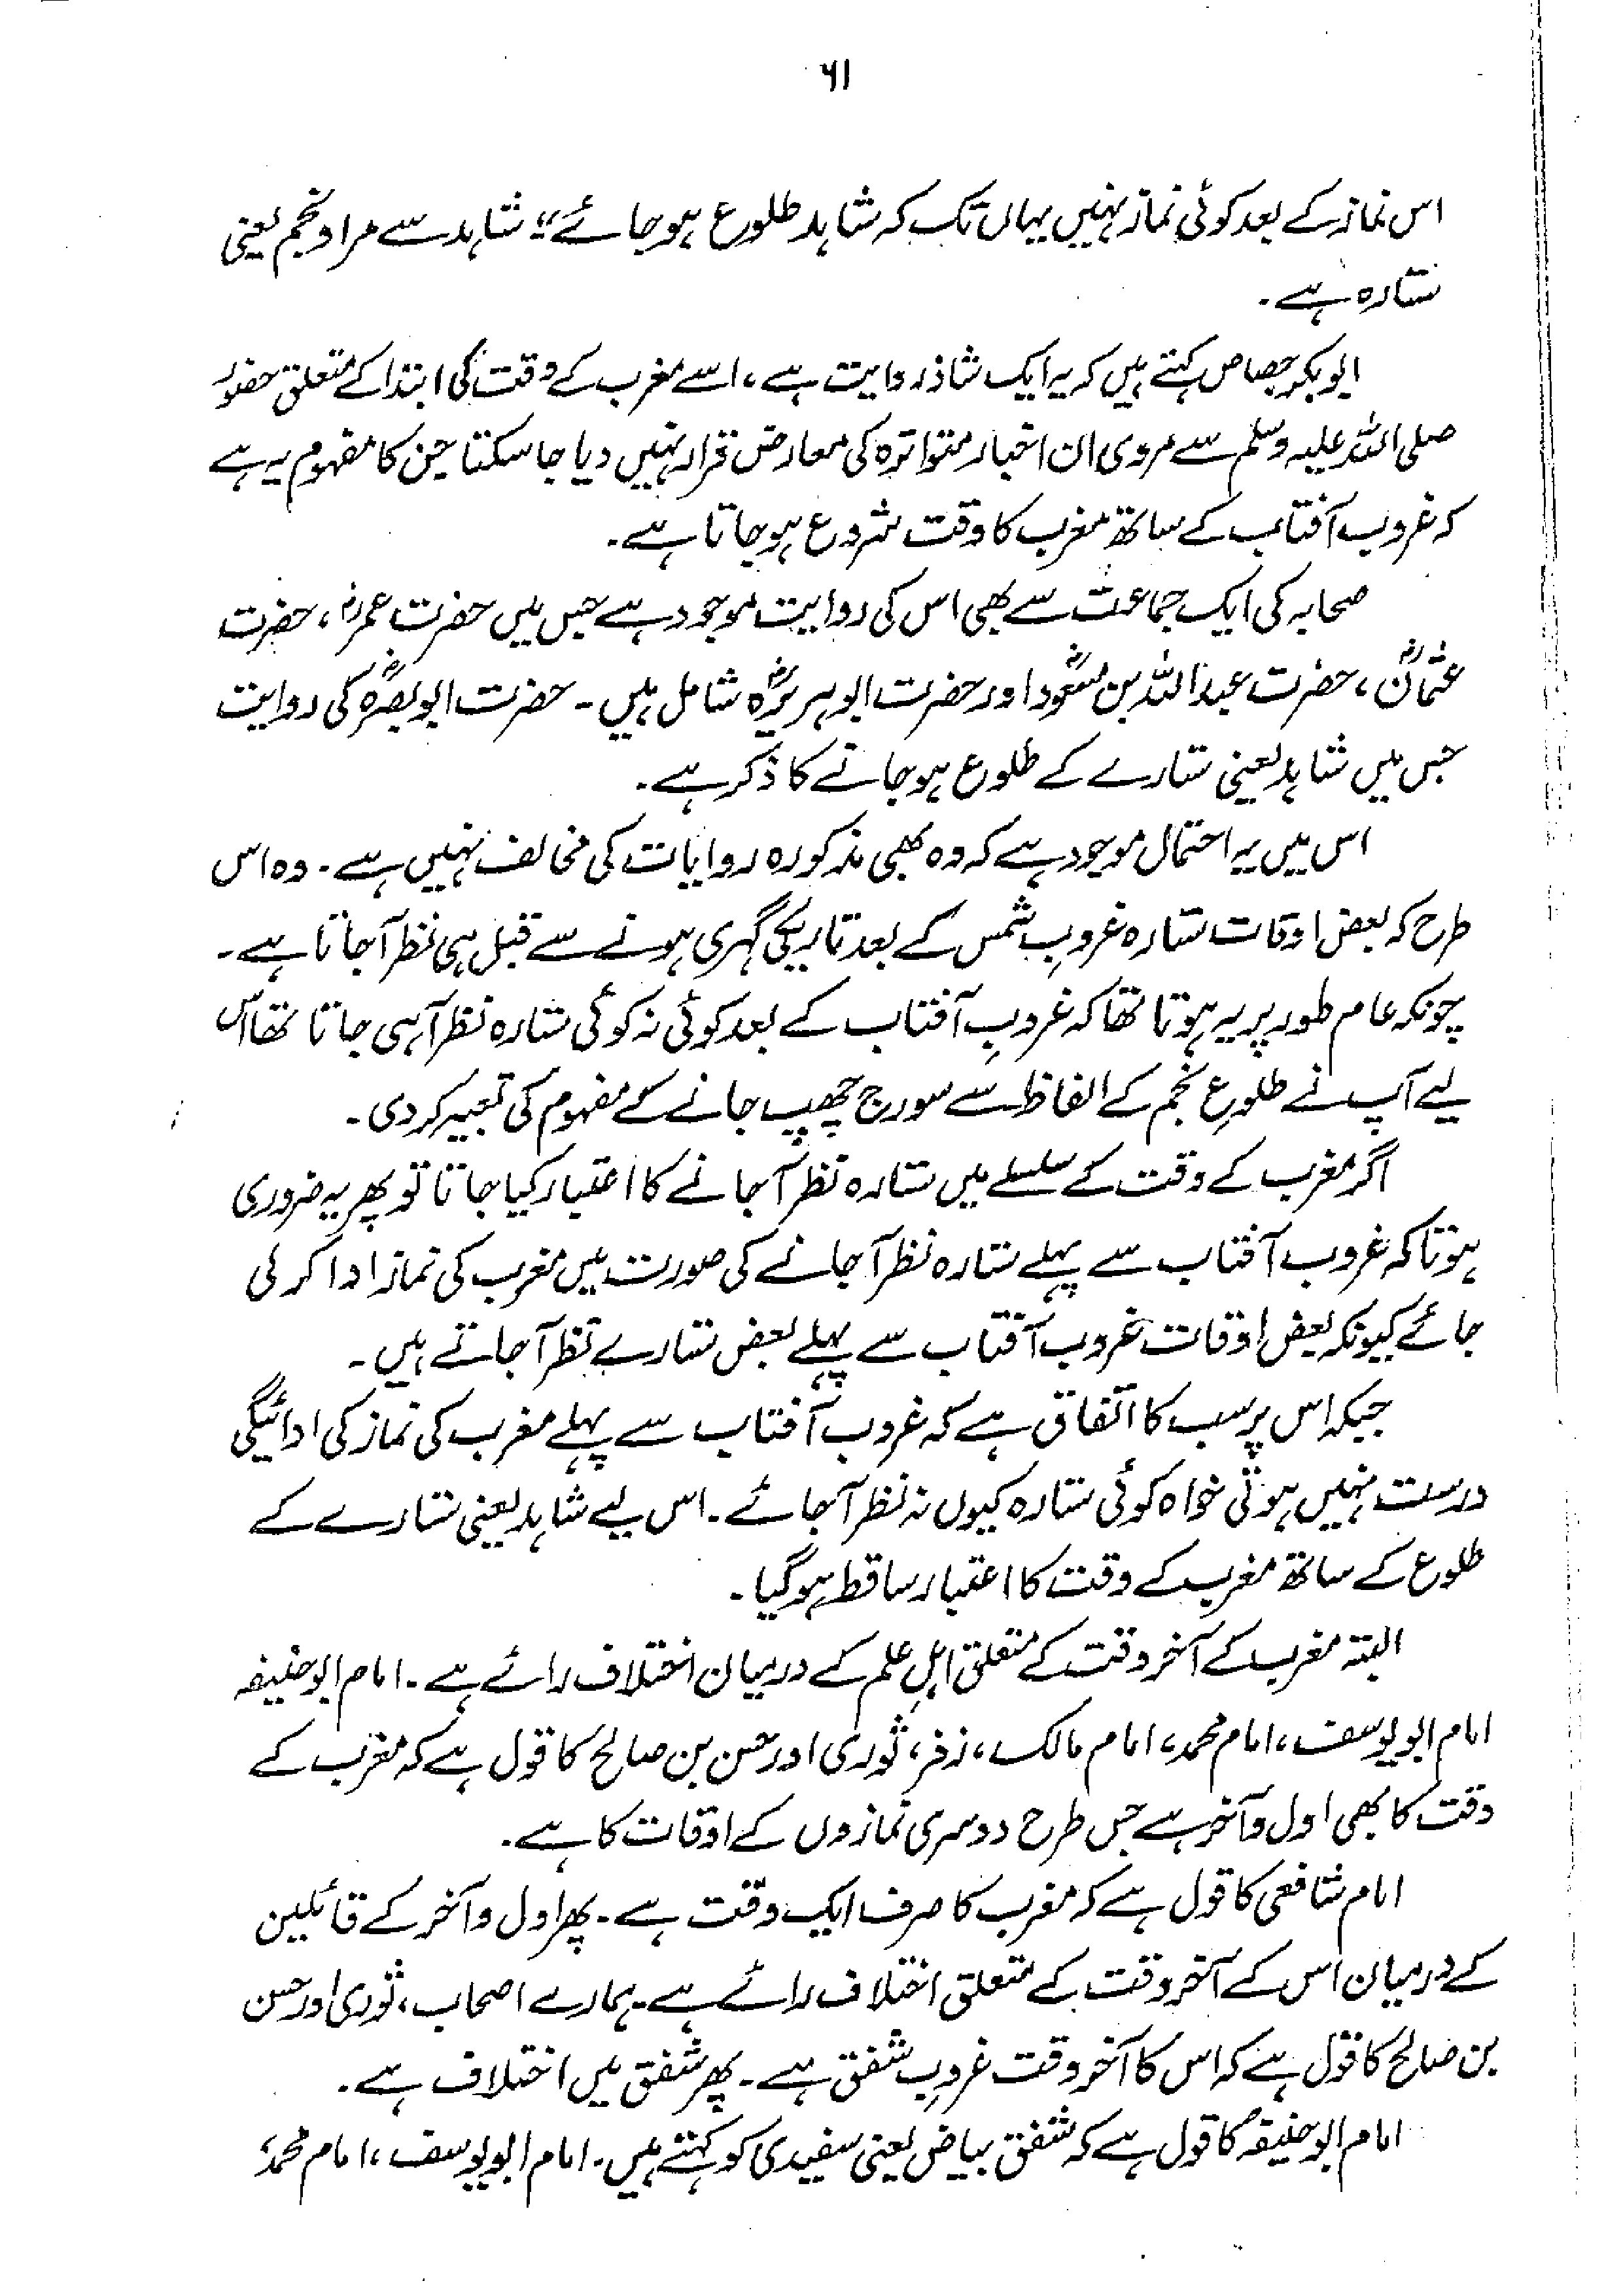 ۶۱
اس نماز کے بعد کوئی نماز نہیں یہاں تک کہ شاہد طلوع ہو جائے" شاہد سے مراد نجم یعنی
ستارہ ہے۔
ابوبکر جصاص کہتے ہیں کہ یہ ایک شاذ روایت ہے، اسے مغرب کے وقت کی ابتدا کے متعلق حضور
صلی اللہ علیہ وسلم سے مروی ان اخبار متواترہ کی معارض قرار نہیں دیا جا سکتا جن کا مفہوم یہ ہے
کہ غروب آفتاب کے ساتھ مغرب کا وقت شروع ہو جاتا ہے۔
صحابہ کی ایک جماعت سے بھی اس کی روایت موجود ہے جس میں حضرت عمرؓ، حضرت
عثمانؓ، حضرت عبداللہ بن مسعودؓ اور حضرت ابوہریرہؓ شامل ہیں۔ حضرت ابوبصرہؓ کی روایت
جس میں شاہد یعنی ستارے کے طلوع ہو جانے کا ذکر ہے۔
اس میں یہ احتمال موجود ہے کہ وہ بھی مذکورہ روایات کی مخالف نہیں ہے۔ وہ اس
طرح کہ بعض اوقات ستارہ غروبِ شمس کے بعد تاریکی گہری ہونے سے قبل ہی نظر آ جاتا ہے۔
چونکہ عام طور پر یہ ہوتا تھا کہ غروبِ آفتاب کے بعد کوئی نہ کوئی ستارہ نظر آ ہی جاتا تھا اس
لیے آپ نے طلوعِ نجم کے الفاظ سے سورج چھپ جانے کے مفہوم کی تعبیر کر دی۔
اگر مغرب کے وقت کے سلسلے میں ستارہ نظر آ جانے کا اعتبار کیا جاتا تو پھر یہ ضروری
ہوتا کہ غروب آفتاب سے پہلے ستارہ نظر آ جانے کی صورت میں مغرب کی نماز ادا کر لی
جائے کیونکہ بعض اوقات غروب آفتاب سے پہلے بعض ستارے نظر آ جاتے ہیں۔
جبکہ اس پر سب کا اتفاق ہے کہ غروب آفتاب سے پہلے مغرب کی نماز کی ادائیگی
درست نہیں ہوتی خواہ کوئی ستارہ کیوں نہ نظر آ جائے۔ اس لیے شاہد یعنی ستارے کے
طلوع کے ساتھ مغرب کے وقت کا اعتبار ساقط ہو گیا۔
البتہ مغرب کے آخر وقت کے متعلق اہلِ علم کے درمیان اختلاف رائے ہے۔ امام ابوحنیفہ
امام ابویوسف، امام محمد، امام مالک، زفر، ثوری اور حسن بن صالح کا قول ہے کہ مغرب کے
وقت کا بھی اول و آخر ہے جس طرح دوسری نمازوں کے اوقات کا ہے۔
امام شافعی کا قول ہے کہ مغرب کا صرف ایک وقت ہے۔ پھر اول و آخر کے قائلین
کے درمیان اس کے آخر وقت کے متعلق اختلاف رائے ہے۔ ہمارے اصحاب، ثوری اور حسن
بن صالح کا قول ہے کہ اس کا آخر وقت غروبِ شفق ہے۔ پھر شفق میں اختلاف ہے۔
امام ابوحنیفہؒ کا قول ہے کہ شفق بیاض یعنی سفیدی کو کہتے ہیں۔ امام ابویوسف، امام محمدؒ